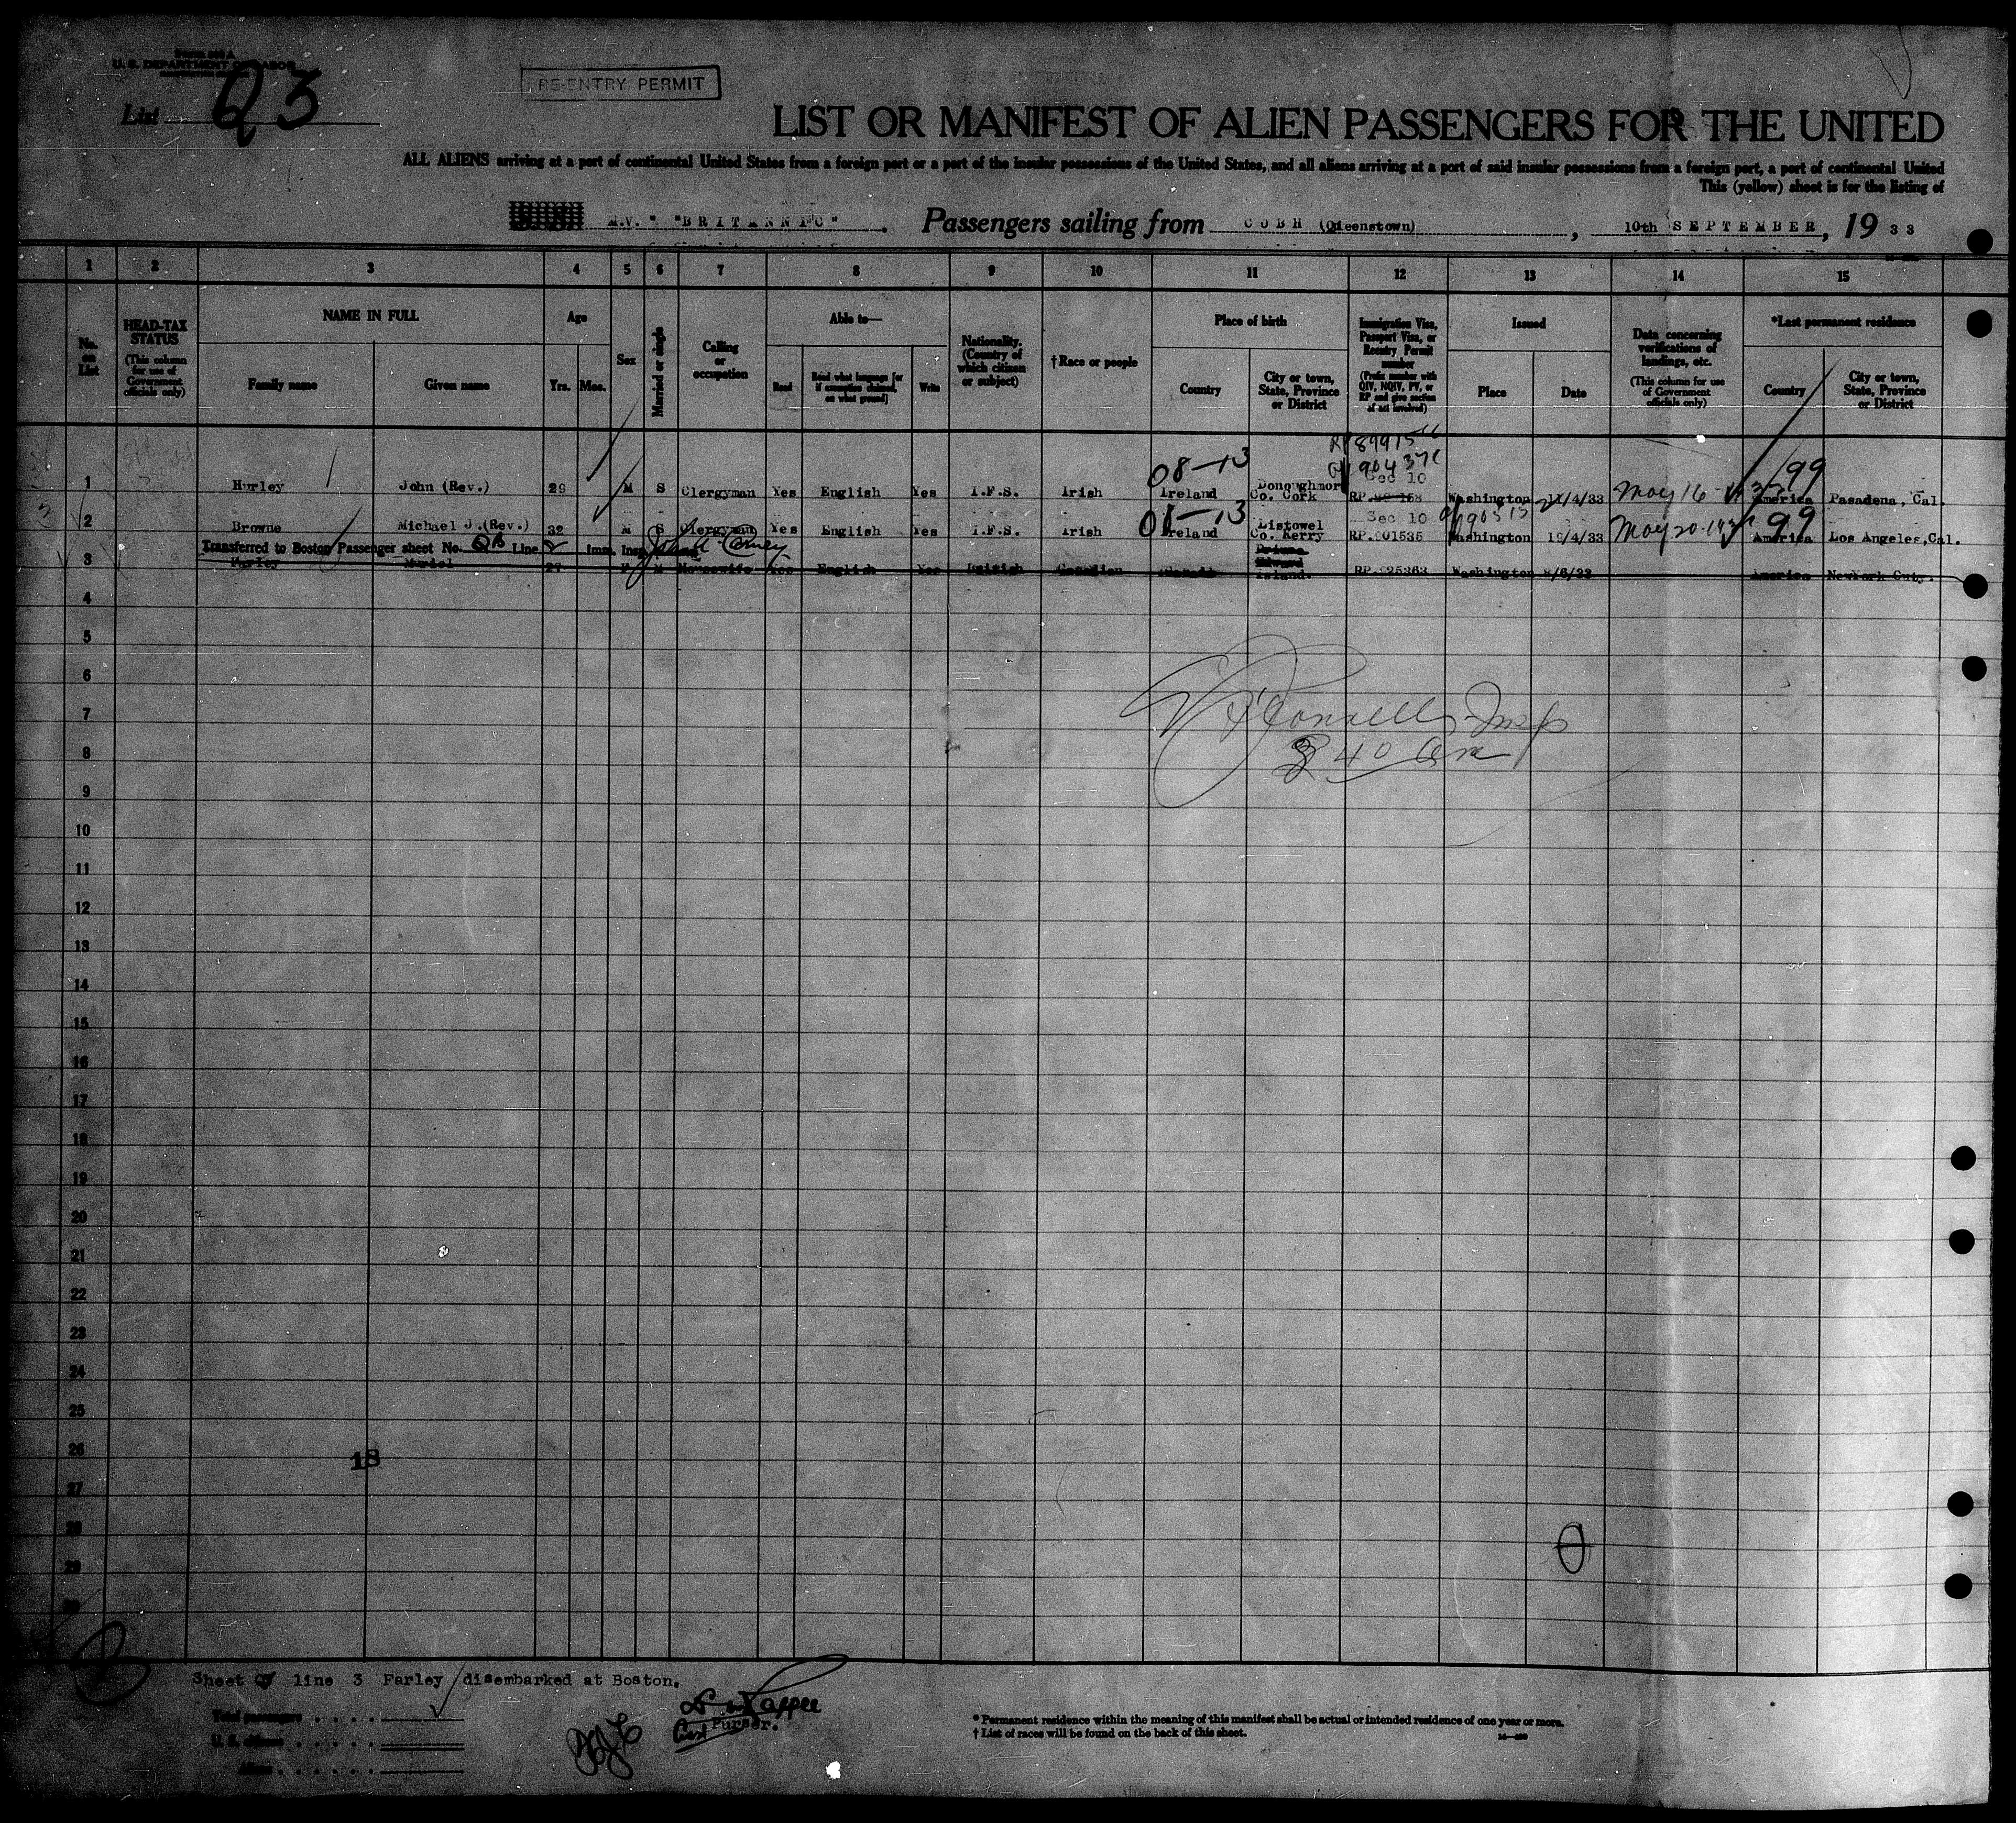 U. S. DEPARTMENT OF LABOR
List Q3
RE-ENTRY PERMIT
LIST OR MANIFEST OF ALIEN PASSENGERS FOR THE UNITED
ALL ALIENS arriving at a port of continental United States from a foreign port or a port of the insular possessions of the United States, and all aliens arriving at a port of said insular possessions from a foreign port, a port of continental United
This (yellow) sheet is for the listing of
M.V. " "BRITANNIC" . Passengers sailing from COBH (Queenstown) , 10th SEPTEMBER, 19 33
1 2 3 4 5 6 7 8 9 10 11 12 13 14 15
No. on List
HEAD-TAX STATUS
(This column for use of Government officials only)
NAME IN FULL
Family name
Given name
Age
Yrs. Mos.
Sex
Married or single
Calling or occupation
Able to—
Read
Read what language [or if exemption claimed, on what ground]
Write
Nationality. (Country of which citizen or subject)
†Race or people
Place of birth
Country
City or town, State, Province or District
Immigration Visa, Passport Visa, or Reentry Permit number
(Prefix number with QIV, NQIV, PV, or RP and give section of act involved)
Issued
Place
Date
Data concerning verifications of landings, etc.
(This column for use of Government officials only)
*Last permanent residence
Country
City or town, State, Province or District
08-13
99
Sec 10
1 Hurley John (Rev.) 29 M S Clergyman Yes English Yes I.F.S. Irish Ireland Donoughmore Co. Cork Washington 11/4/33 May 16 America Pasadena, Cal.
13
Sec 10
99
2 Browne Michael J.(Rev.) 32 M S Clergyman Yes English Yes I.F.S. Irish Ireland Listowel Co. Kerry RP.901535 Washington 19/4/33 May 20 America Los Angeles,Cal.
Transferred to Boston Passenger sheet No. QB Line 2 Imm. Insp.
3 Farley Muriel 27 F M Housewife Yes English Yes British Canadian Canada Prince Edward Island. RP. 925363 Washington America NewYork City.
4
5
6
7
O'Connell Insp
8
40 am
9
10
11
12
13
14
15
16
17
18
19
20
21
22
23
24
25
26
18
27
28
29
30
Sheet line 3 Farley disembarked at Boston.
Total passengers . . . .
Purser.
U. S. citizens . . . . .
Aliens . . . . . .
* Permanent residence within the meaning of this manifest shall be actual or intended residence of one year or more.
† List of races will be found on the back of this sheet.